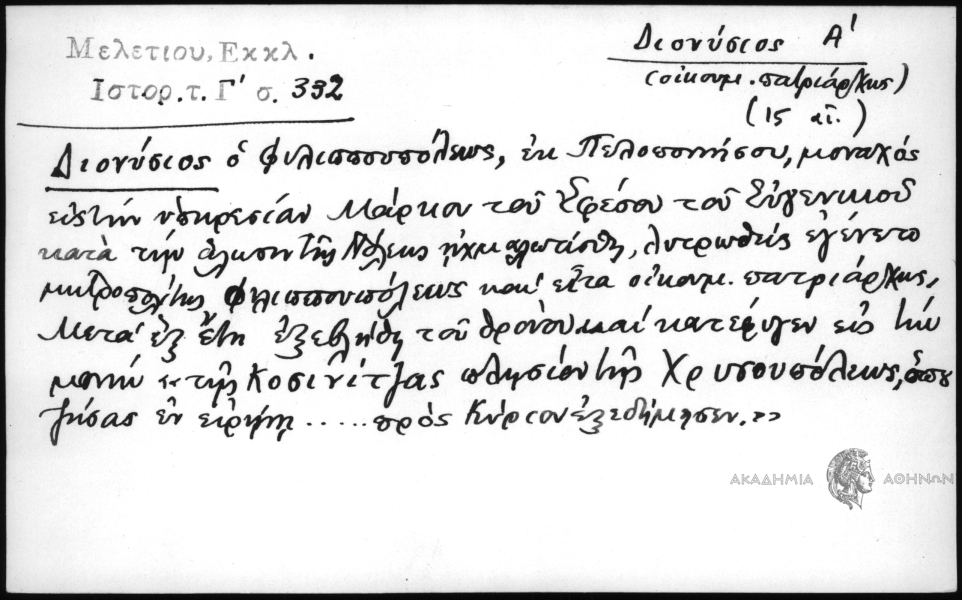 Μελετίου, Εκκλ.
Ιστορ. τ. Γ' σ. 332
Διονύσιος Α'
(οἰκουμ. πατριάρχης)
(15 αἰ.)
Διονύσιος ὁ Φιλιππουπόλεως, ἐκ Πελοποννήσου, μοναχός
εἰς τὴν ὑπηρεσίαν Μάρκου τοῦ Ἐφέσου τοῦ Εὐγενικοῦ
κατὰ τὴν ἅλωσιν τῆς Πόλεως ᾐχμαλωτίσθη, λυτρωθεὶς ἐγένετο
μητροπολίτης Φιλιππουπόλεως καὶ εἶτα οἰκουμ. πατριάρχης,
Μετὰ ἓξ ἔτη ἐξεβλήθη τοῦ θρόνου καὶ κατέφυγεν εἰς τὴν
μονὴν « τῆς Κοσινίτζας πλησίον τῆς Χρυσουπόλεως, ὅπου
ζήσας ἐν εἰρήνῃ ..... πρὸς Κύριον ἐξεδήμησεν. »
ΑΚΑΔΗΜΙΑ ΑΘΗΝΩΝ